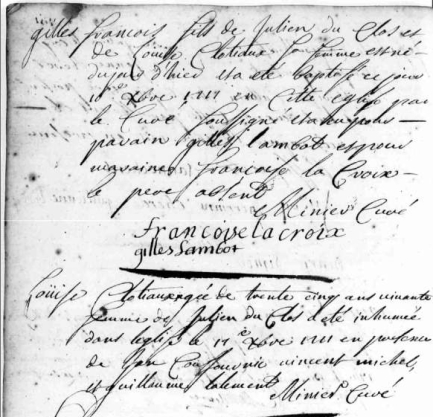 gilles francois fils de Julien du Clos et
de Loüise Clotiaux sa femme est né
du jour d'hier et a eté baptisé ce jour
Xbre 1711 en cette eglise par
le Curé soussigné et a eu pour
parain gilles lambot et pour
maraine francoise la Croix
le pere absent
Minier Curé
francoise lacroix
gilles Lambot
Loüise Clotiaux agée de trente cinq ans vivante
femme de Julien du Clos a été inhumée
dans leglise le Xbre 1711 en presence
de Jean vincent michel,
et guillaume
Minier Curé